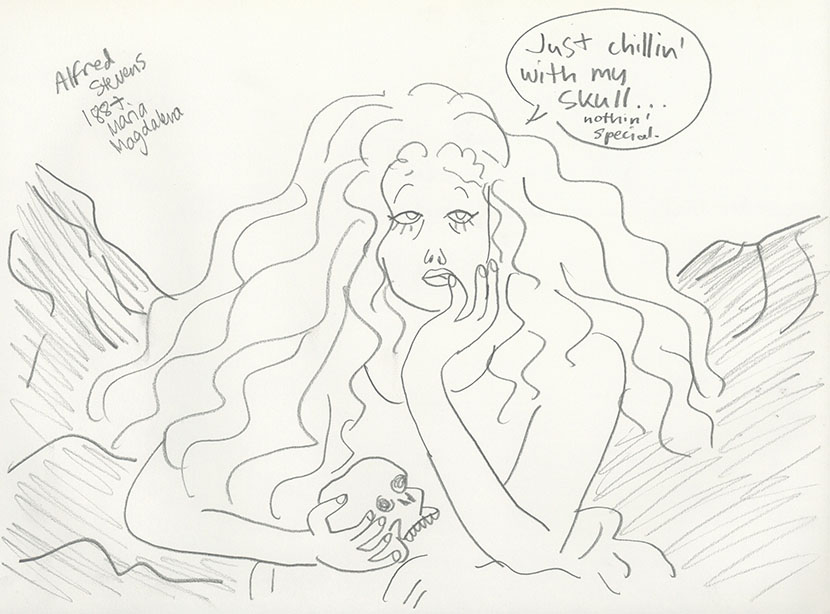 Alfred
Stevens
1887
Maria
Magdalena
Just chillin'
with my
skull...
nothin'
special.